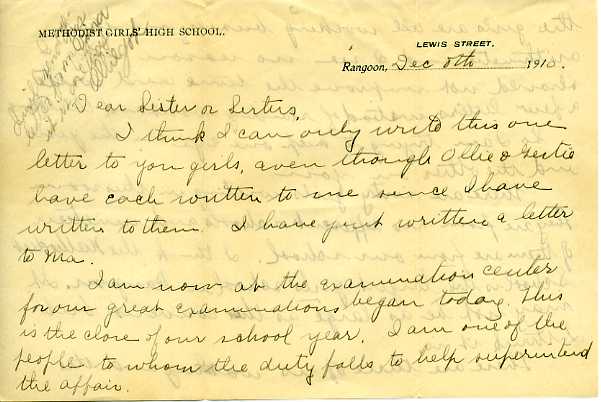 METHODIST GIRLS' HIGH SCHOOL.
LEWIS STREET.
Rangoon, Dec 8th 1910.
Dear Sister or Sisters,
I think I can only write this one
letter to you girls, even though Ollie & Gertie
have each written to me since I have
written to them. I have just written a letter
to Ma.
I am now at the examination center
for our great examinations began today. This
is the close of our school year. I am one of the
people to whom the duty falls to help superintend
the affair.